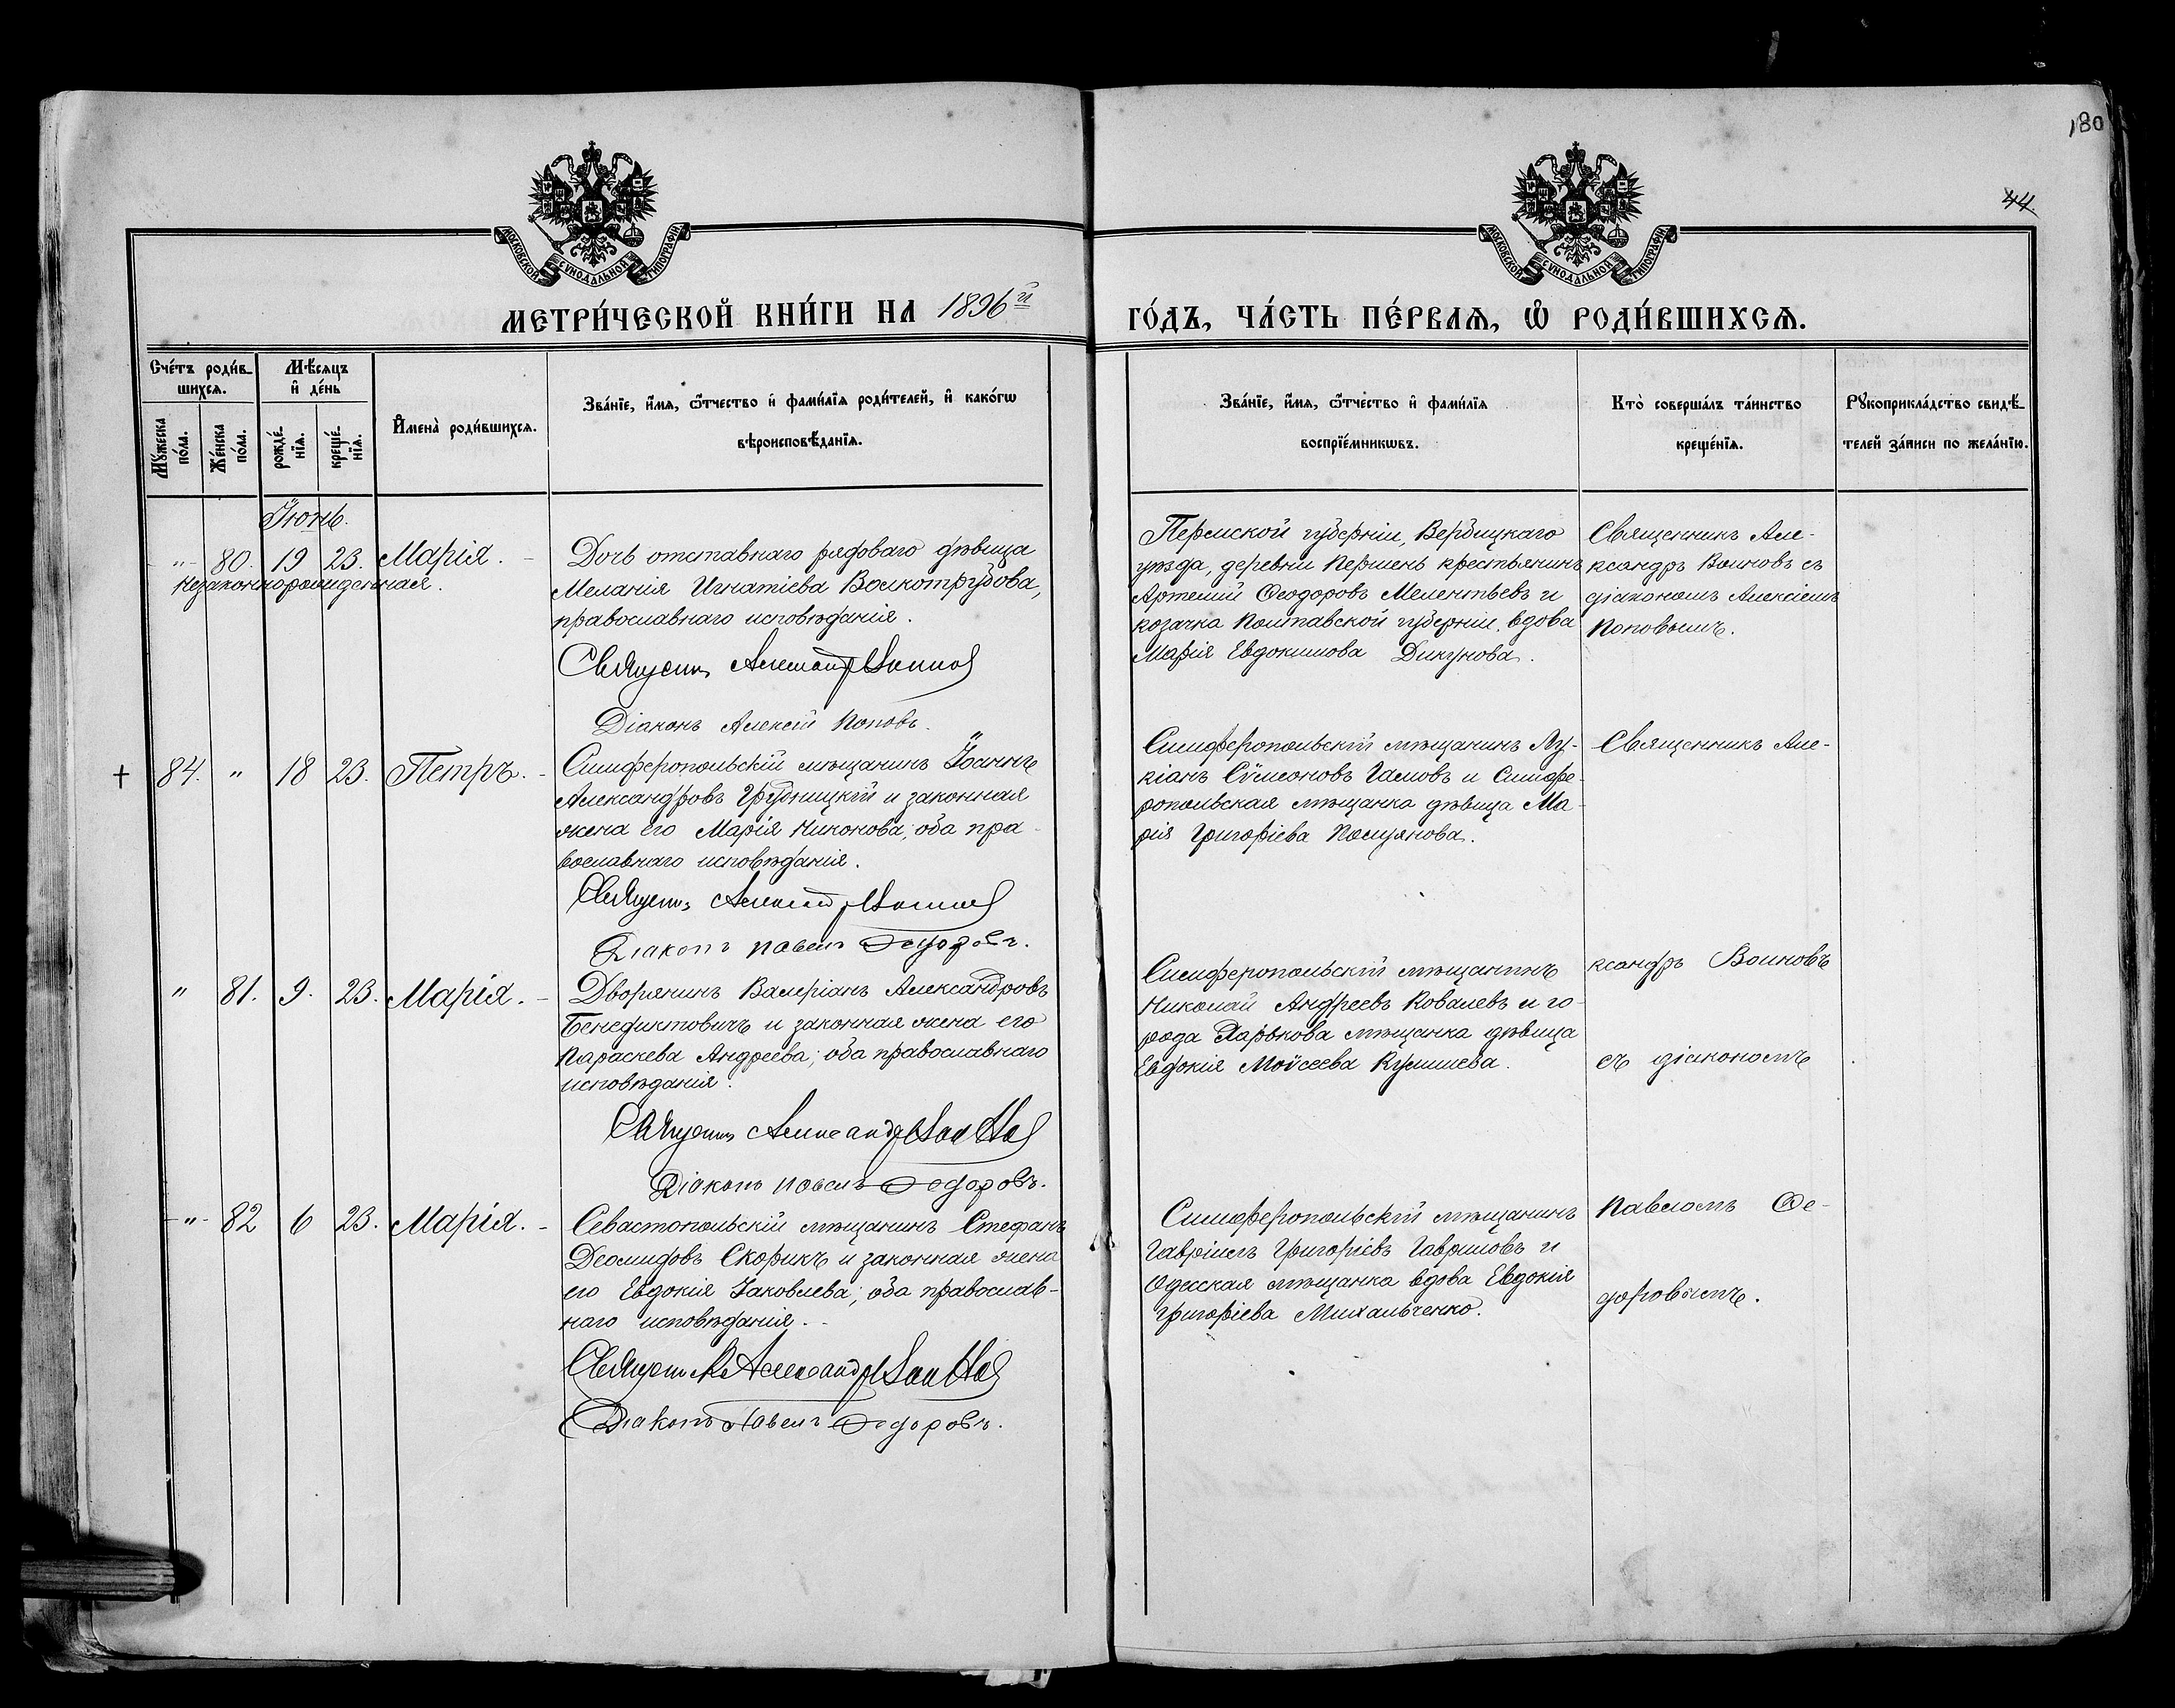 180
44
МОСКОВСКОЙ СѴНОДАЛЬНОЙ ТИПОГРАФІИ
МОСКОВСКОЙ СѴНОДАЛЬНОЙ ТИПОГРАФІИ
МЕТРИ́ЧЕСКОЙ КНИ́ГИ НА 1896й
ГО́ДЪ, ЧА́СТЬ ПЕ́РВАѦ, Ѡ РОДИ́ВШИХСѦ.
Сче́тъ роди́в-
шихсѧ.
Мꙋ́жеска по́ла.
Же́нска по́ла.
Мѣ́сѧцъ
и҆ де́нь
рожде́-нїѧ.
креще́-нїѧ.
И҆мена̀ роди́вшихсѧ.
Зва́нїе, и҆́мѧ, ѻ҆́тчество и҆ фами́лїѧ роди́телей, и҆ како́гѡ
вѣроисповѣ́данїѧ.
Зва́нїе, и҆́мѧ, ѻ҆́тчество и҆ фами́лїѧ
воспрїе́мникѡвъ.
Кто̀ соверша́лъ та́инство
креще́нїѧ.
Рꙋкоприкла́дство свидѣ́-
телей за́писи по жела́нїю.
Іюнь.
-"- 80. 19 23. Марія. -
Незаконнорожденная.
Дочь отставнаго рядоваго дѣвица
Меланія Игнатіева Волкотрубова,
православнаго исповѣданія.
Священ. Александр Воинов
Діаконъ Алексій Поповъ.
Пермской губерніи,
уѣзда, деревни Першень крестьянинъ
Артемій Ѳеодоровъ Мелентьевъ и
козачка Полтавской губерніи, вдова
Марія Евдокимова Дикунова.
Священникъ Але-
ксандръ Воиновъ съ
діакономъ Алексіемъ
Поповымъ.
+ 84. " 18 23. Петръ. -
Симферопольскій мѣщанинъ Іоаннъ
Александровъ и законная
жена его Марія Никонова; оба пра-
вославнаго исповѣданія.
Священ. Александр Воинов
Діаконъ Павелъ Ѳедоровъ.
Симферопольскій мѣщанинъ Лу-
кіанъ Сѵмеоновъ Гамовъ и Симфе-
ропольская мѣщанка дѣвица Ма-
рія Григоріева
Священникъ Але-
" 81. 9. 23. Марія. -
Дворянинъ Валеріанъ Александровъ
Бенедиктовичъ и законная жена его
Параскева Андреева; оба православнаго
исповѣданія.
Священ. Александр Воинов
Діаконъ Павелъ Ѳедоровъ.
Симферопольскій мѣщанинъ
Николай Андреевъ Ковалевъ и го-
рода Харькова мѣщанка дѣвица
Евдокія Моѵсеева
ксандръ Воиновъ
съ діакономъ
-"- 82 6 23. Марія. -
Севастопольскій мѣщанинъ Стефанъ
Деомидовъ Скорикъ и законная жена
его Евдокія Іаковлева; оба православ-
наго исповѣданія.
Священник Александр Воинов
Діаконъ Павелъ Ѳедоровъ.
Симферопольскій мѣщанинъ
Гавріилъ Григоріевъ Гавриловъ и
Одесская мѣщанка вдова Евдокія
Григоріева Михальченко.
Павломъ Ѳе-
доровымъ.